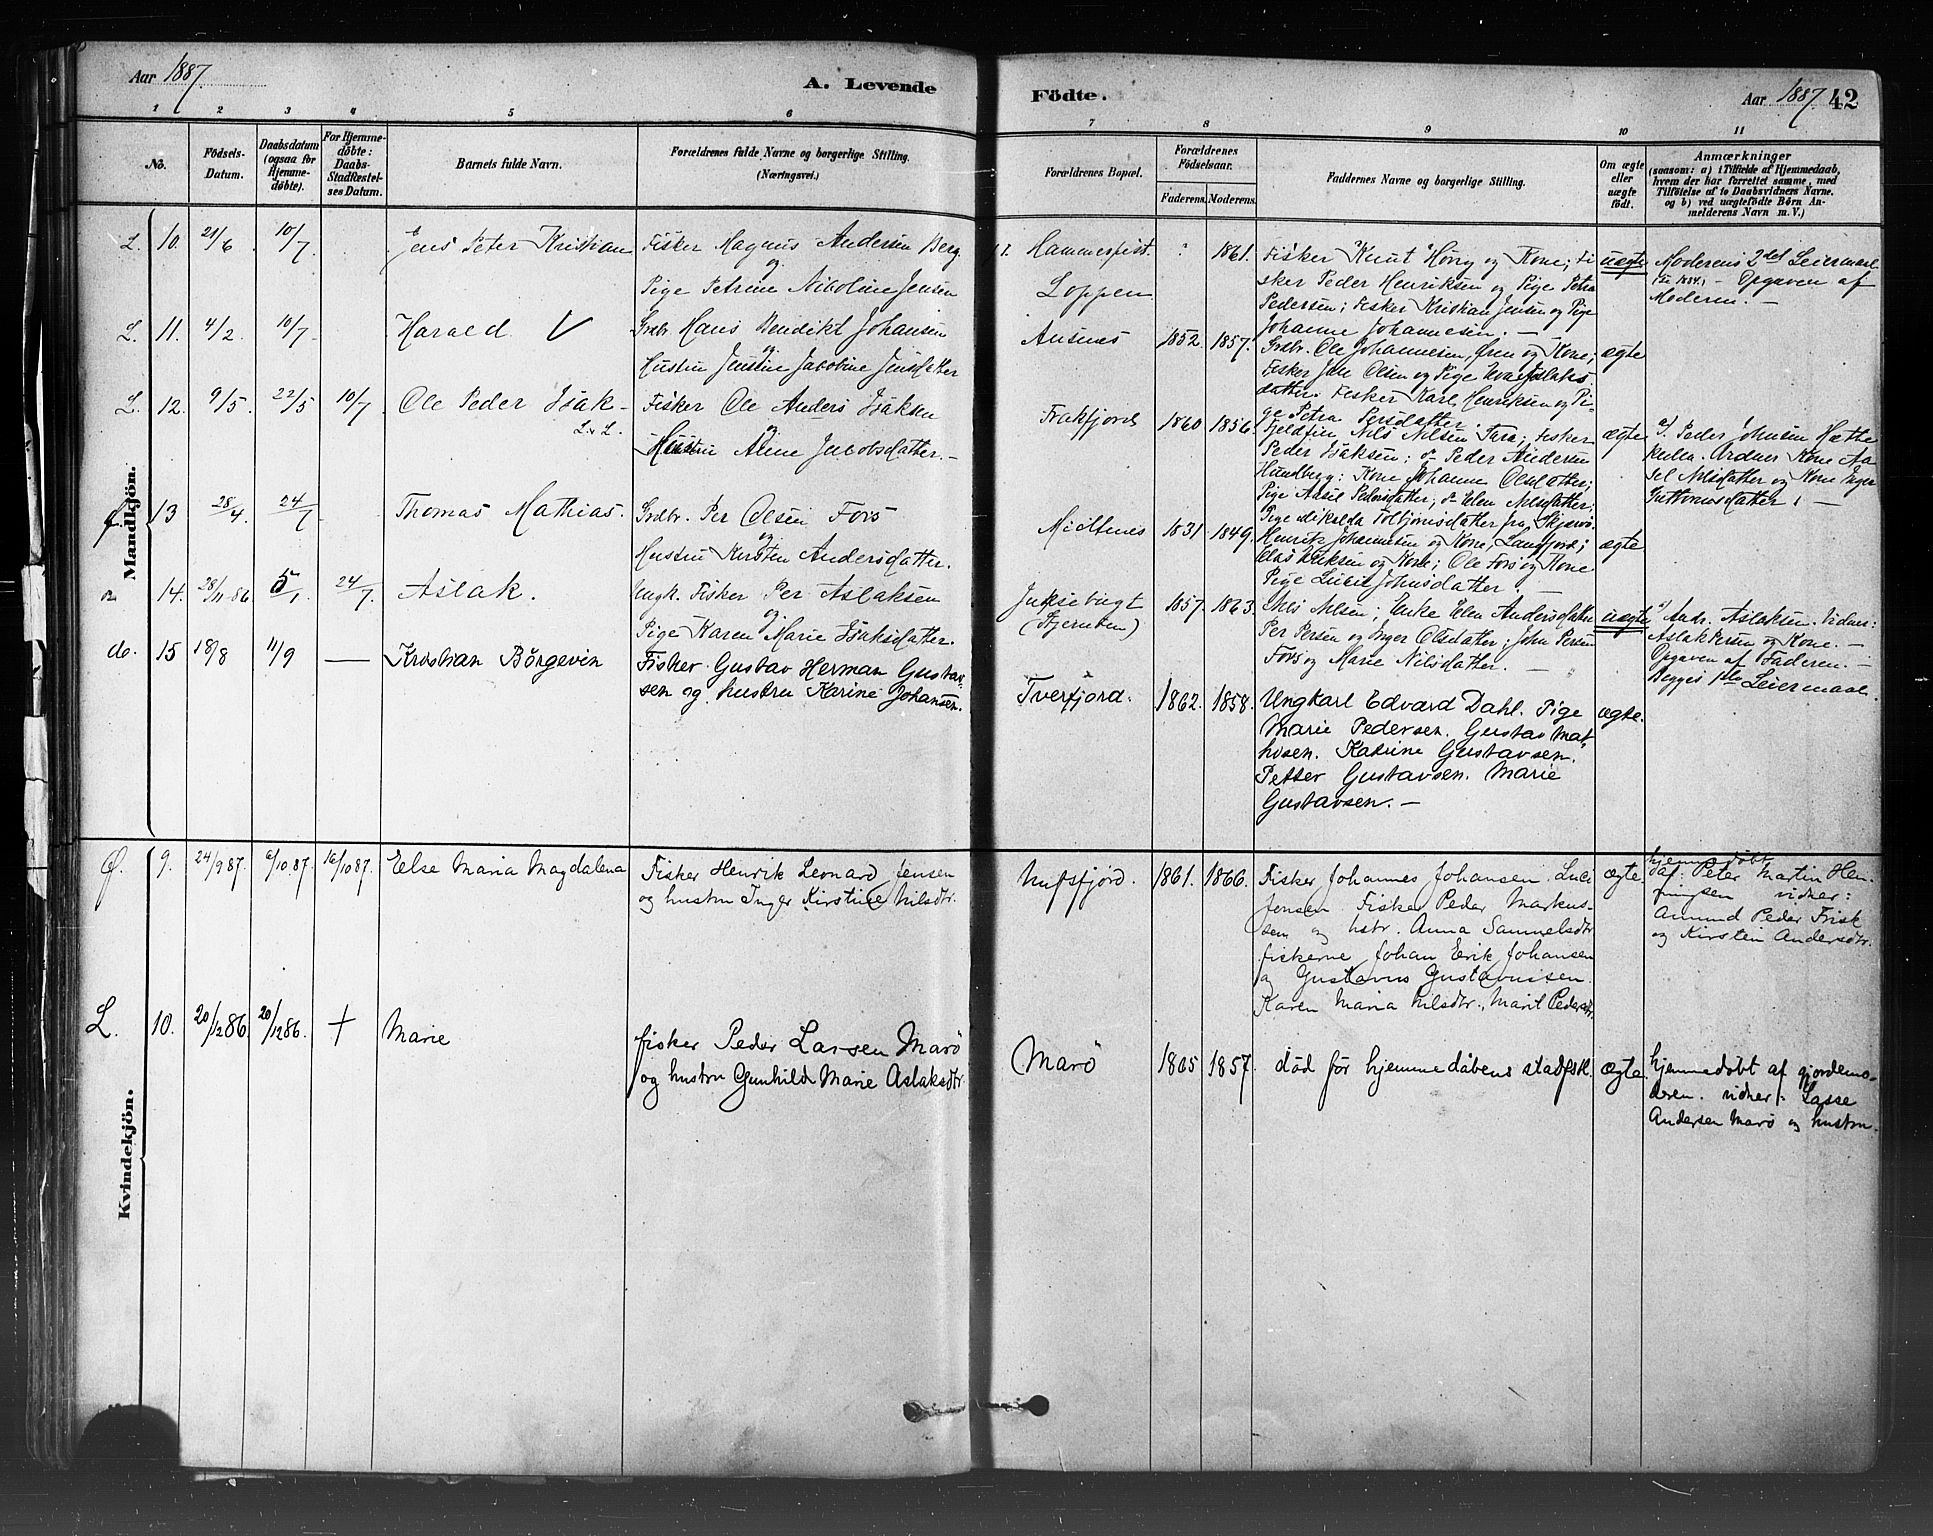 Aar 1887
A. Levende
Födte.
Aar 1887 42
1 2 3 4 5 6 7 8 9 10 11
No.
Födsels-
Datum.
Daabsdatum
(ogsaa for
Hjemme-
døbte).
For Hjemme-
døbte:
Daabs-
Stadfæstel-
ses Datum.
Barnets fulde Navn.
Forældrenes fulde Navne og borgerlige Stilling.
(Næringsvei.)
Forældrenes Bopæl.
Forældrenes
Födselsaar.
Faderens. Moderens.
Faddernes Navne og borgerlige Stilling.
Om ægte
eller
uægte
født.
Anmærkninger
(saasom: a) i Tilfælde af Hjemmedaab,
hvem der har forrettet samme, med
Tilföielse af to Daabsvidners Navne.
og b) ved uægtefödte Börn An-
melderens Navn m. V.)
Mandkjön.
L. 10. 21/6 10/7 Jens Peter Kristian
Fisker Magnus Andersen Berg
og
Pige Petrine Nicoline Jensen
Hammerfest.
Loppen
1861.
Fisker Knut Høvg og Kone; Fi
sker Peder Henriksen og Pige Petra
Pedersen; Fisker Kristian Jensen og Pige
Johanne Johannesen. —
uægte
Moderens 2det Leiermaal
— Opgaven af
Moderen. —
L. 11. 4/2 10/7 Harald V
Grdbr. Hans Bendikt Johansen
og
Hustru Jensine Jacobine Jensdatter
Ausnes 1852. 1857.
Grdbr. Ole Johannesen, Øren og Kone;
Fisker Jens Olsen og Pige
datter. Fisker Karl Henriksen og Pi-
ge Petra Persdatter.
ægte
L. 12. 9/5 22/5 10/7 Ole Peder Isak
L. L.
Fisker Ole Anders Isaksen
og
Hustru Aline Jacobsdatter. —
Frakfjord 1860 1856.
Fjeldfin Nils Nilsen Tara; Fisker
Peder Isaksen; do Peder Andersen
Hundberg; Kone Johanne Olsdatter;
Pige Assil Pedersdatter; do Elen Nilsdatter;
Pige Mikelda Tolbjørnsdatter fra Skjervö.
ægte
a). Peder Johnsen Hætte
Kone Aa
sel Nilsdatter og Kone Inger
Guttormsdatter. —
13 28/4 24/7 Thomas Mathias.
Grdbr. Per Olsen Fors
og
Hustru Kirsten Andersdatter.
Midtnes 1831 1849.
Henrik Johannesen og Kone, Langfjord;
Eriksen og Kone; Ole Fors og Kone
Pige Lucie Johnsdatter. —
ægte
14. 28/11-86 5/1 24/7 Aslak.
Ungk. Fisker Per Aslaksen
og
Pige Karen Marie Isaksdatter.
Juksebugt
(Stjernøen)
1857. 1863.
Nils Nilsen; Enke Elen Andersdatter
Per Persen og Inger Olsdatter; John Persen
Fors og Marie Nilsdatter. —
uægte
a) Andr. Aslaksen. Vidner:
Aslak Persen og Kone. —
Opgaven af Faderen. —
Begges 1ste Leiermaal.
do. 15 18/8 11/9 — Kristian Börgevin
Fisker Gustav Herman Gustav-
sen og hustru Karine Johansen.
Tverfjord. 1862. 1858.
Ungkarl Edvard Dahl. Pige
Marie Pedersen. Gustav Mat-
hisen. Katrine Gustavsen.
Petter Gustavsen. Marie
Gustavsen. —
ægte.
Kvindekjön.
Ø. 9. 24/9 87. 6/10 87. 16/10 87. Else Maria Magdalena
Fisker Henrik Leonard Jensen
og hustru Inger Kirstine Nilsdtr.
Nufsfjord. 1861. 1866.
Fisker Johannes Johansen. Luci
Jensen. Fisker Peder Markus-
sen og hstr. Anna Sammelsdtr
fiskerne Johan Eerik Johansen
og Gustavus Gustavussen.
Karen Maria Nilsdtr. Marit Pedersdtr.
ægte.
hjemmedöbt
af: Peter Martin Hen-
ningsen vidner:
Amund Peder Frisk
og Kirsten Andersdtr.
L. 10. 20/12 86. 20/12 86. + Marie
fisker Peder Larsen Marö
og hustru Gunhild Marie Aslaksdtr.
Marö 1865 1857.
död för hjemmedåbens stadfsk.
ægte.
hjemmedöbt af gjordemo-
deren. vidner: Lasse
Andersen Marö og hustru.